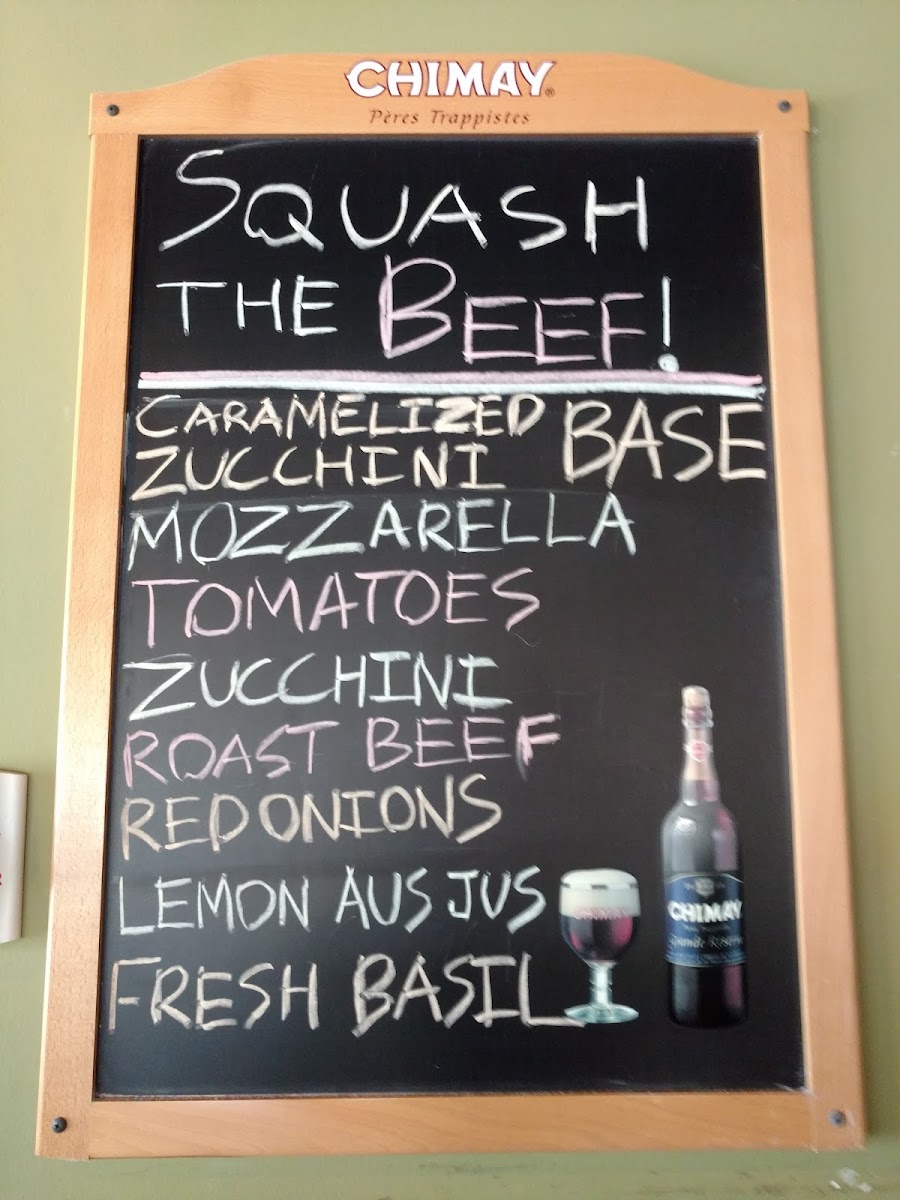 CHIMAY®
Pères Trappistes
SQUASH
THE BEEF!
CARAMELIZED
ZUCCHINI BASE
MOZZARELLA
TOMATOES
ZUCCHINI
ROAST BEEF
RED ONIONS
LEMON AUS JUS
FRESH BASIL
CHIMAY
CHIMAY
Grande Réserve